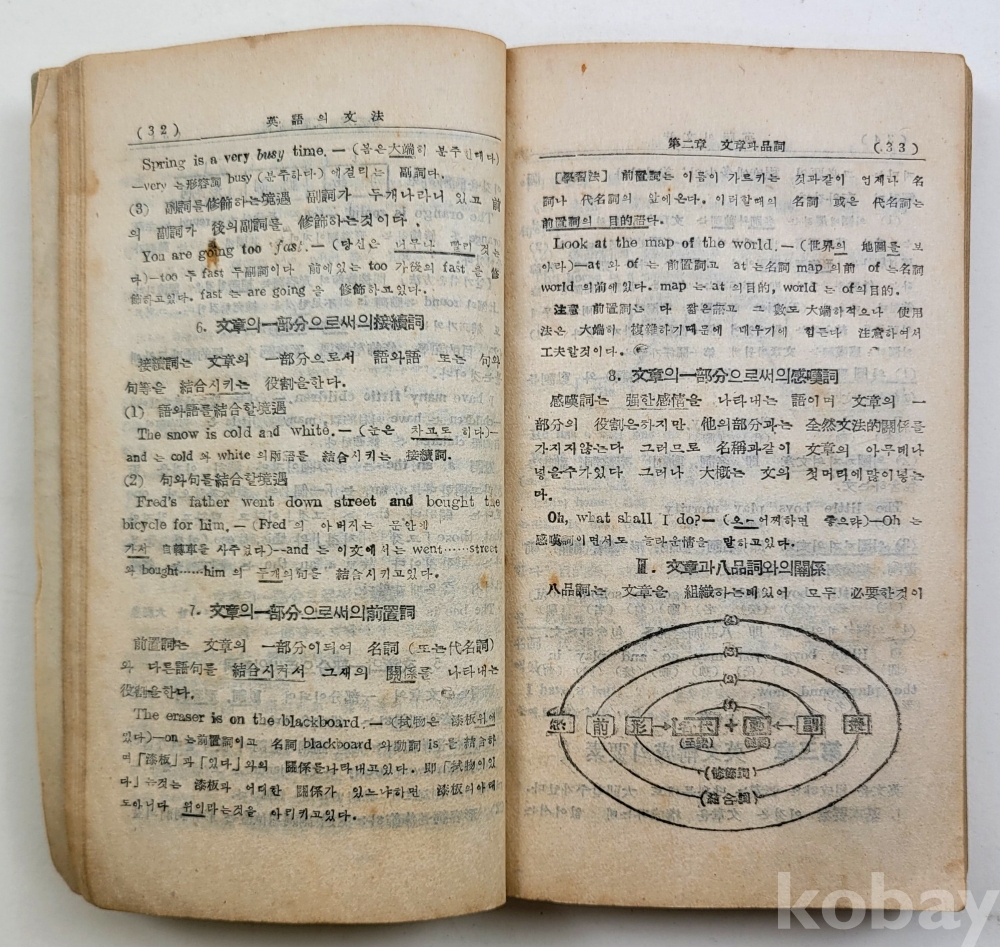 (32) 英語의文法
Spring is a very busy time.—(봄은大端히 분주한때다)
—very 는形容詞 busy (분주하다) 에걸리는 副詞다.
(3) 副詞를修飾하는境遇 副詞가 두개나라니 있고 前
의 副詞가 後의副詞를 修飾하는것이다.
You are going too fast.—(당신은 너무나 빨리 것는
다)—too 두 fast 두副詞이다 前에있는 too 가後의 fast 를 修
飾하고있다. fast 는 are going 을 修飾하고있다.
6. 文章의一部分으로써의接續詞
接續詞는 文章의 一部分으로서 語와語 또는 句와
句等을 結合시키는 役割을한다.
(1) 語와語를結合할境遇
The snow is cold and white.—(눈은 차고도 히다)—
and 는 cold 와 white 의兩語를 結合시키는 接續詞.
(2) 句와句를結合할境遇
Fred's father went down street and bought the
bicycle for him.—(Fred 의 아버지는 문안에
가서 自轉車를 사주었다)—and 는 이文에서는 went……street
와 bought……him 의 두개의句를 結合시키고있다.
7. 文章의一部分으로써의前置詞
前置詞는 文章의 一部分이되여 名詞 (또는代名詞)
와 다른語句를 結合시켜서 그새의 關係를 나타내는
役割을한다.
The eraser is on the blackboard.—(拭物은 漆板위에
있다)—on 는前置詞이고 名詞 blackboard 와動詞 is 를 結合하
며「漆板」과「있다」와의 關係를나타내고있다. 即「拭物이있
다」는것은 漆板과 어더한 關係가 있느냐하면 漆板의아래
도아니다 위이다는것을 아리키고있다.
第二章 文章과品詞 (33)
[學習法] 前置詞는 이름이 가르키는 것과같이 언제나 名
詞나 代名詞의 앞에온다. 이러할때의 名詞 或은 代名詞는
前置詞의 目的語다.
Look at the map of the world.—(世界의 地圖를 보
아라)—at 와 of 는 前置詞고 at 는名詞 map 의前 of 는名詞
world 의前에있다. map 는 at 의目的, world 는 of의目的.
注意 前置詞는 다 짧은語고 그 數도 大端하적으나 使用
法은 大端히 複雜하기때문에 매우기에 힘든다 注意하여서
工夫할것이다.
8. 文章의一部分으로써의感嘆詞
感嘆詞는 强한感情을 나타내는 語이며 文章의 一
部分의 役割은하지만, 他의部分과는 全然文法的關係를
가지지않는다 그러므로 名稱과같이 文章의 아무데나
넣을수가있다 그러나 大概는 文의 첫머리에많이넣는
다.
Oh, what shall I do?—(오—어찌하면 좋으랴)—Oh 는
感嘆詞이면서도 놀라운情을 말하고있다.
Ⅱ. 文章과八品詞와의關係
八品詞는 文章을 組織하는데있어 모두 必要한것이
(4)
(3)
(2)
(1)
感 前 形 → 名代 + 動 ← 副 接
(主語) (動詞)
(修飾詞)
(結合詞)
kobay